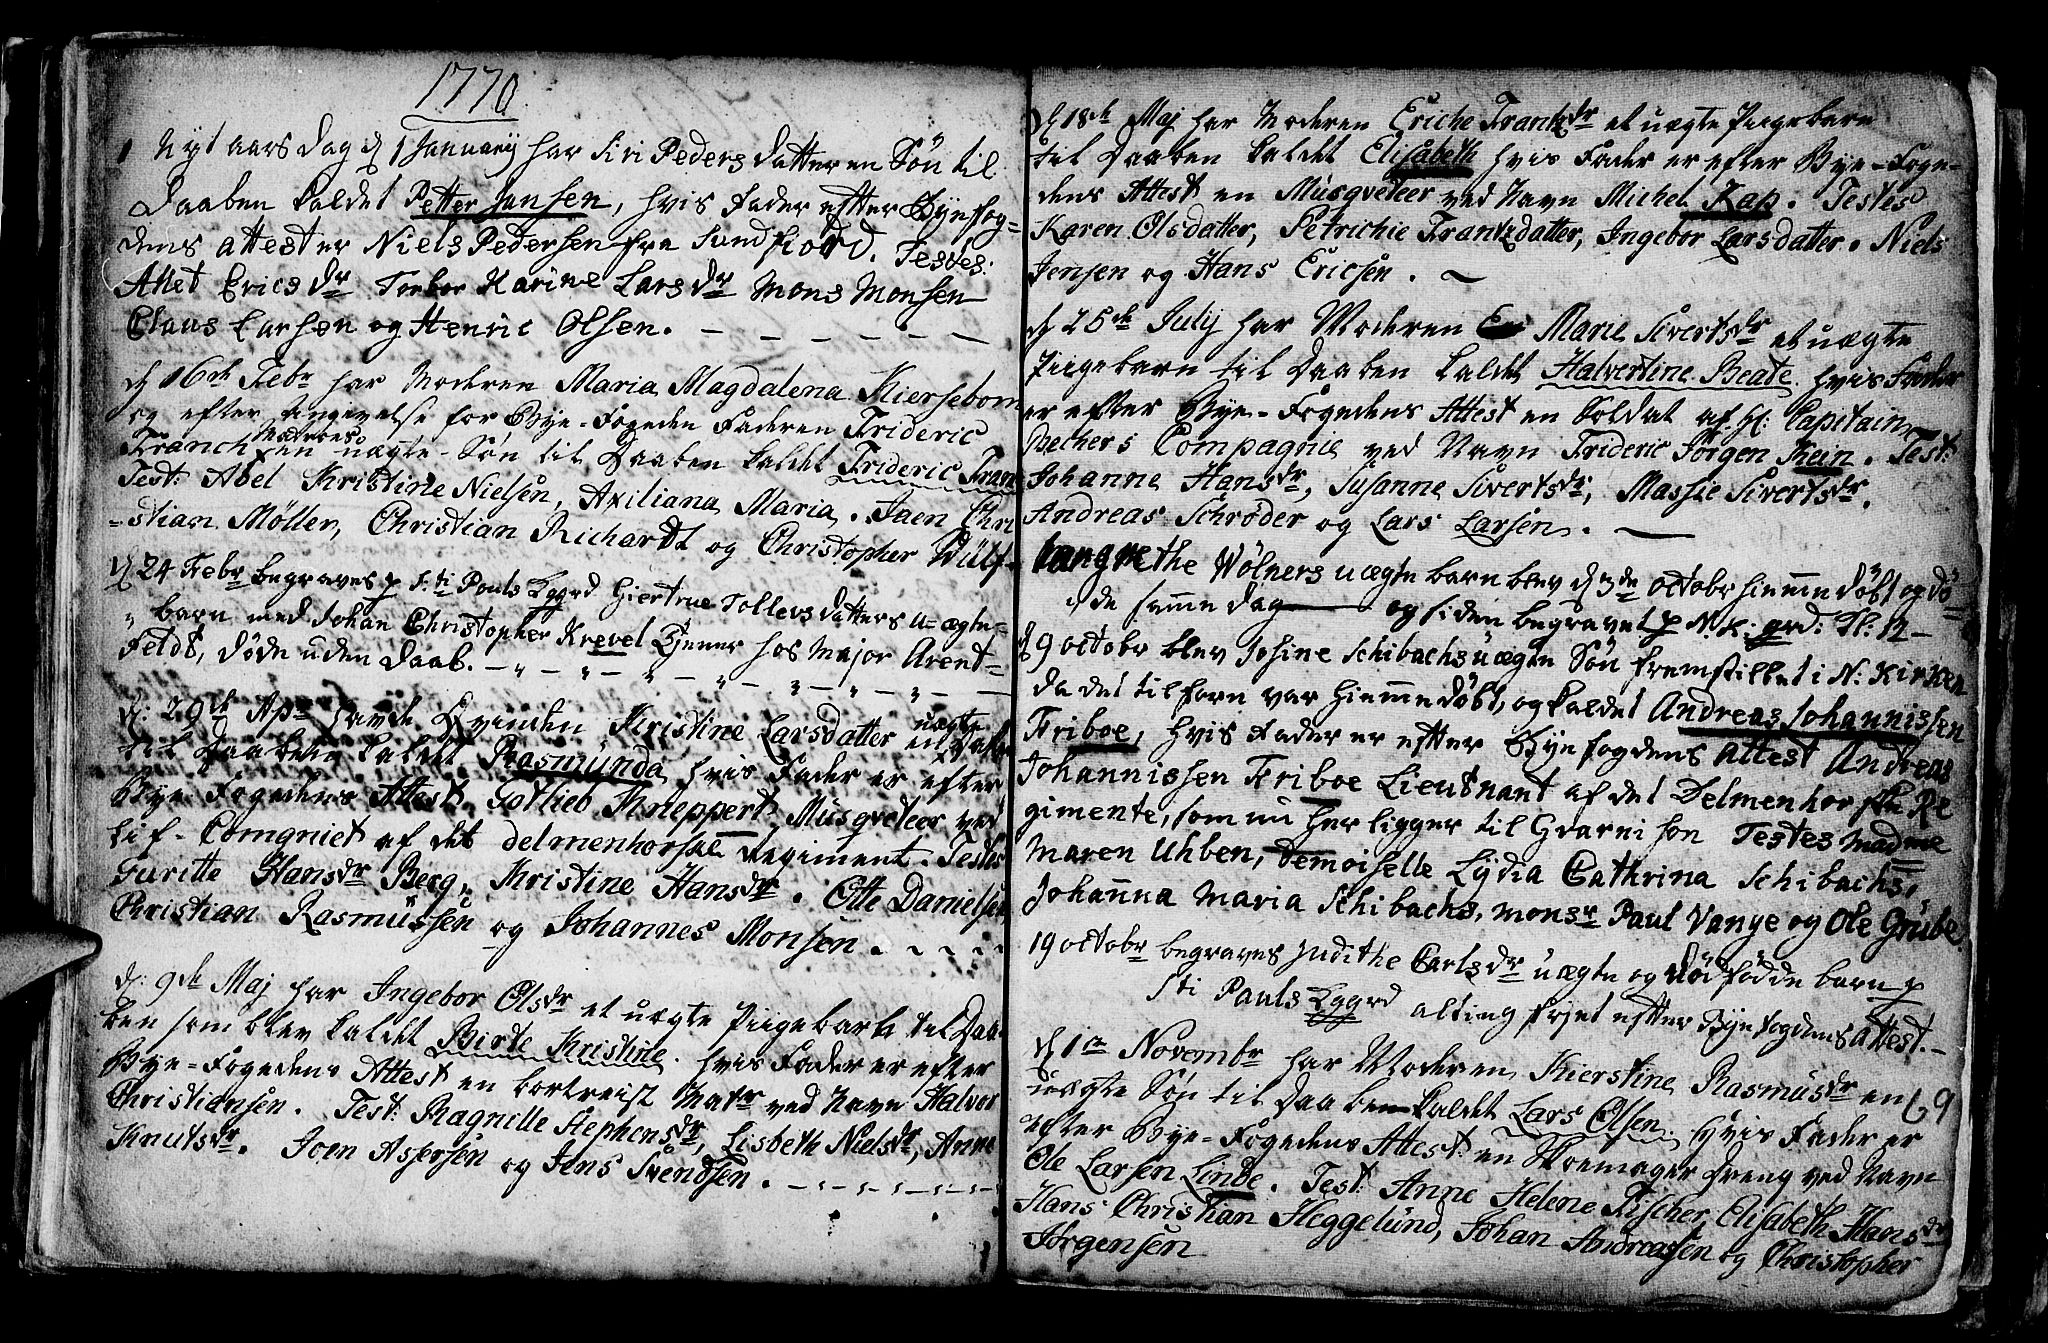 1770
Nyt aars Dag d 1 January har Siri Peders datter en Søn til
Daaben kaldet Petter Jansen, hvis Fader efter Byefog-
dens attest er Niels Pedersen fra Sundfiord. Testes:
Allet Erics dr Torbor Karine Lars dr Mons Monsen
Claus Larsen og Henric Olsen.
d 16de Febr har Moderen Maria Magdalena Kiersebom
og efter Angivelse for Bye-Fogeden Faderen Frideric
Franch Matros en uægte Søn til Daaben kaldet Frideric Fran
Test: Abel Kristine Nielsen, Axiliana Maria. Jaen Chri
-stian Møller, Christian Richardt og Christopher Wülf
d 24 Febr begraves p Sti Pouls Kggrd Giertrue Tollevsdatters u-ægte-
barn med Johan Christopher Krevel Tjener hos Major Arent-
Feldt, døde uden Daab.
d: 29de Apr havde Qvinden Kristine Larsdatter en uægte
til Daaben kaldet Rasmünda, hvis Fader er efter
Bye Fogedens Attest Gotlieb Kneppert Müsqveteer ved
Lif-Compagniet af det delmenhorske Regiment. Testes
Guritte Hans dr Berg, Kristine Hans dr. Otte Danielsen
Christian Rasmüssen og Johannes Monsen.
d: 9de Maj har Ingebor Ols dr et uægte Piigebarn til Daa-
ben som blev kaldet Birte Kristine. hvis Fader er efter
Bye-Fogedens Attest en bortreist Matr ved Navn Halvor
Christiansen. Test: Ragnille Stephens dr, Lisbeth Niels dr, Anne
Knuts dr. Joen Assersen og Jens Svendsen.
d 18de Maj har Moderen Eriche Frantz dr et uægte Piigebarn
til Daaben kaldet Elisabeth hvis Fader er efter Bye-Foge-
dens Attest en Müsqveteer ved Navn Michel Rap. Testes
Karen Olsdatter, Petrichie Frantzdatter, Ingebor Larsdatter. Niels
Jensen og Hans Ericsen.
d 25de July har Moderen Marie Siverts dr et uægte
Piigebarn til Daaben kaldet Halvertine Beate hvis Fader
er efter Bye-Fogedens Attest en Soldat af H: Capitain
Bechers Compagnie ved Navn Frideric Jørgen Kein. Test:
Johanne Hans dr, Susanne Siverts dr, Massie Siverts dr.
Andreas Schrøder og Lars Larsen.
Wølners uægte barn blev d 3de octobr hiemme døbt og dø-
de samme dag og siden begravet p N. K: grd: Fl: 12
d 9 octobr blev Johine Schibachs uægte Søn fremstillet i N: Kirken
da det tilforn var hiemme døbt, og kaldet Andreas Johannissen
Friboe, hvis Fader er efter Byefogdens Attest Andreas
Johannissen Friboe Lieutnant af det Delmenhorske Re
gimente, som nu her ligger til Gvarnison Testes Madme
Maren Uhben, Demoiselle Lydia Cathrina Schibachs,
Johanna Maria Schibachs, Monsr Paul Vange og Ole Grübe
19 octobr begraves Judithe Carls dr uægte og dødfødde barn p
Sti Pauls Kggrd alting frjet efter Byefogdens Attest.
d 1te Novembr har Moderen Kierstine Rasmus dr en 69
uægte Søn til Daaben kaldet Lars Olsen. Hvis Fader er
efter Bye-Fogedens Attest: en Skoemager dreng ved Navn
Ole Larsen Linde. Test: Anne Helene Fischer, Elisabeth Hans dr
Hans Christian Heggelund, Johan Andreassen og Christopher
Jørgensen